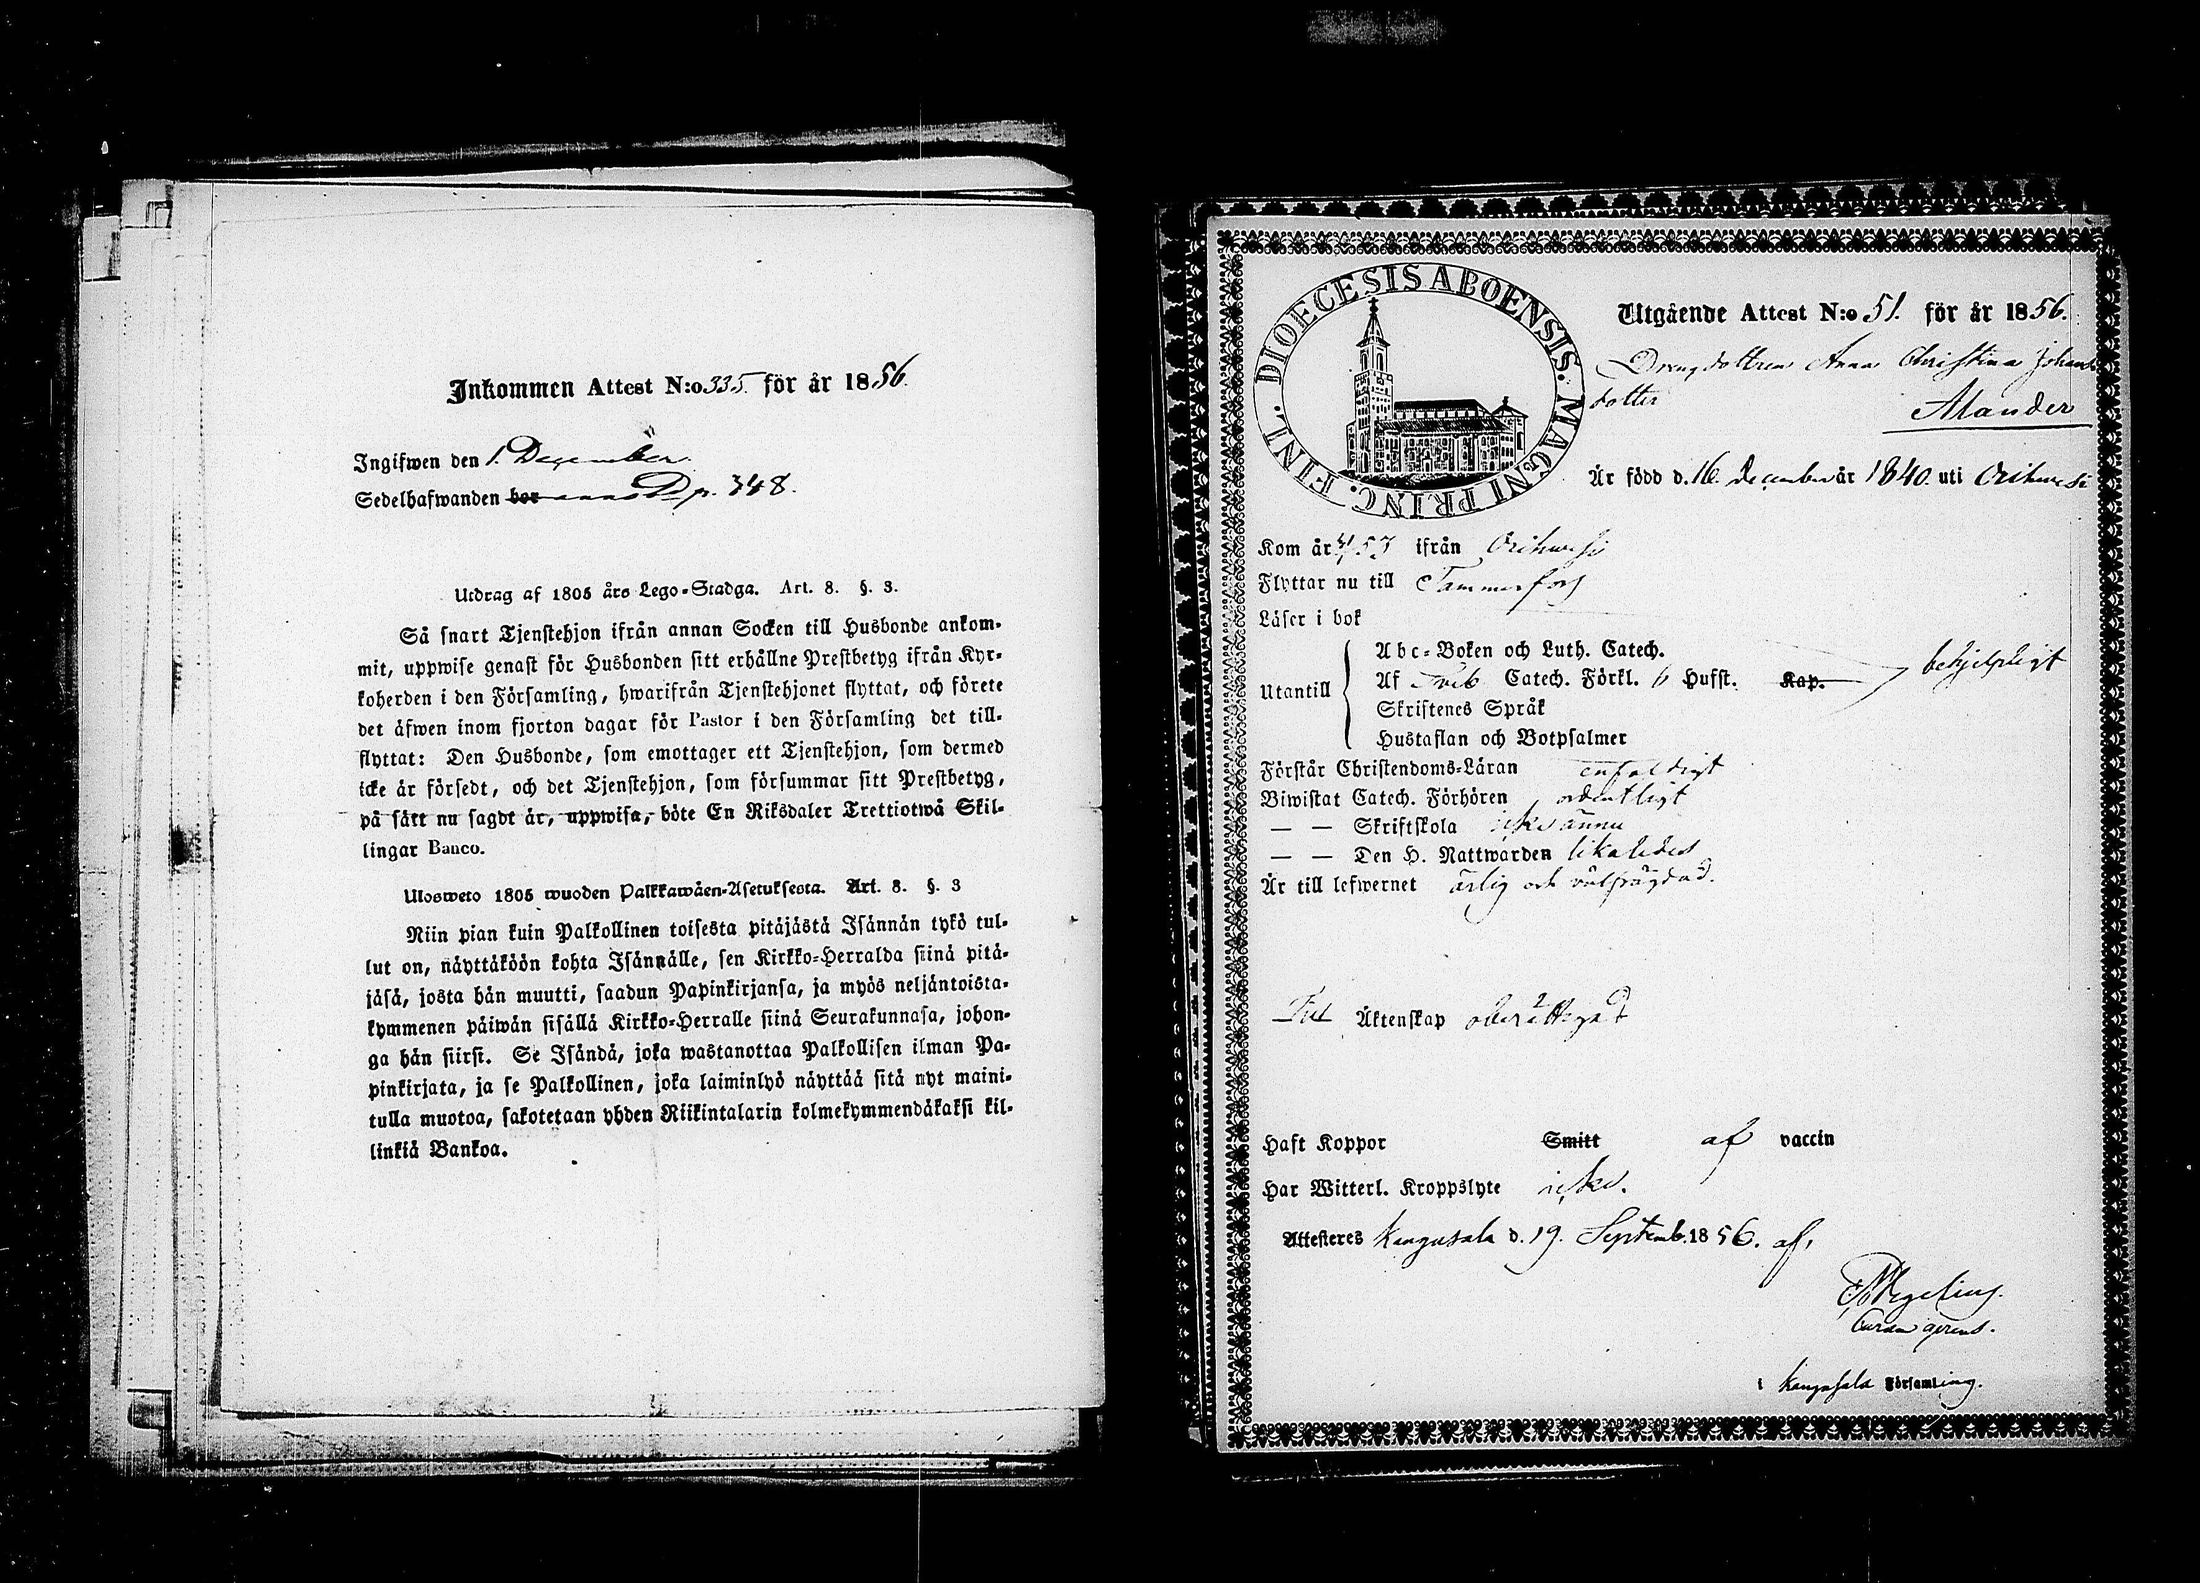 Inkommen Attest N:o 335. för år 1856.
Ingifwen den 1. December.
Sedelhafwanden bor p. 348.
Utdrag af 1805 års Lego-Stadga. Art. 8. §. 3.
Så snart Tjenstehjon ifrån annan Socken till Husbonde ankom-
mit, uppwise genast för Husbonden sitt erhållne Prestbetyg ifrån Kyr-
koherden i den Församling, hwarifrån Tjenstehjonet flyttat, och förete
det åfwen inom fjorton dagar för Pastor i den Församling det till-
flyttat: Den Husbonde, som emottager ett Tjenstehjon, som dermed
icke är försedt, och det Tjenstehjon, som försummar sitt Prestbetyg,
på sätt nu sagdt är, uppwisa, böte En Riksdaler Trettiotwå Skil-
lingar Banco.
Ulosweto 1805 wuoden Palkkawäen-Asetuksesta. Art. 8. §. 3
Niin pian kuin Palkollinen toisesta pitäjästä Isännän tykö tul-
lut on, näyttäköön kohta Isännälle, sen Kirkko-Herralda siinä pitä-
jäsä, josta hän muutti, saadun Papinkirjansa, ja myös neljäntoista-
kymmenen päiwän sisällä Kirkko-Herralle siinä Seurakunnasa, johon-
ga hän siirsi. Se Isändä, joka wastanottaa Palkollisen ilman Pa-
pinkirjata, ja se Palkollinen, joka laiminlyö näyttää sitä nyt maini-
tulla muotoa, sakotetaan yhden Riikintalarin kolmekymmendäkaksi kil-
linkiä Bankoa.
DIOECESIS ABOENSIS. MAGNI PRINC. FINL.
Utgående Attest N:o 51. för år 1856.
Drengdottren Anna Christina Johans
dotter
Alander
Är född d. 16. december år 1840. uti Orihwesi
Kom år 53 ifrån Orihwesi
Flyttar nu till Tammerfors
Läser i bok
Abc-Boken och Luth. Catech.
Utantill Af Sveb Catech. Förkl. 6 Hufst. Kap. behjelpligt
Skriftenes Språk
Hustaflan och Botpsalmer
Förstår Christendoms-Läran enfaldigt
Biwistat Catech. Förhören ordentligt
— — Skriftskola icke ännu
— — Den H. Nattwarden likaledes
Är till lefwernet ärlig och välfrägdad.
Till Äktenskap oberättigad
Haft Koppor Smitt af vaccin
Har Witterl. Kroppslyte icke.
Attesteres Kangasala d. 19. Septemb. 1856. af,
Curam gerens.
i Kangasala Församling.